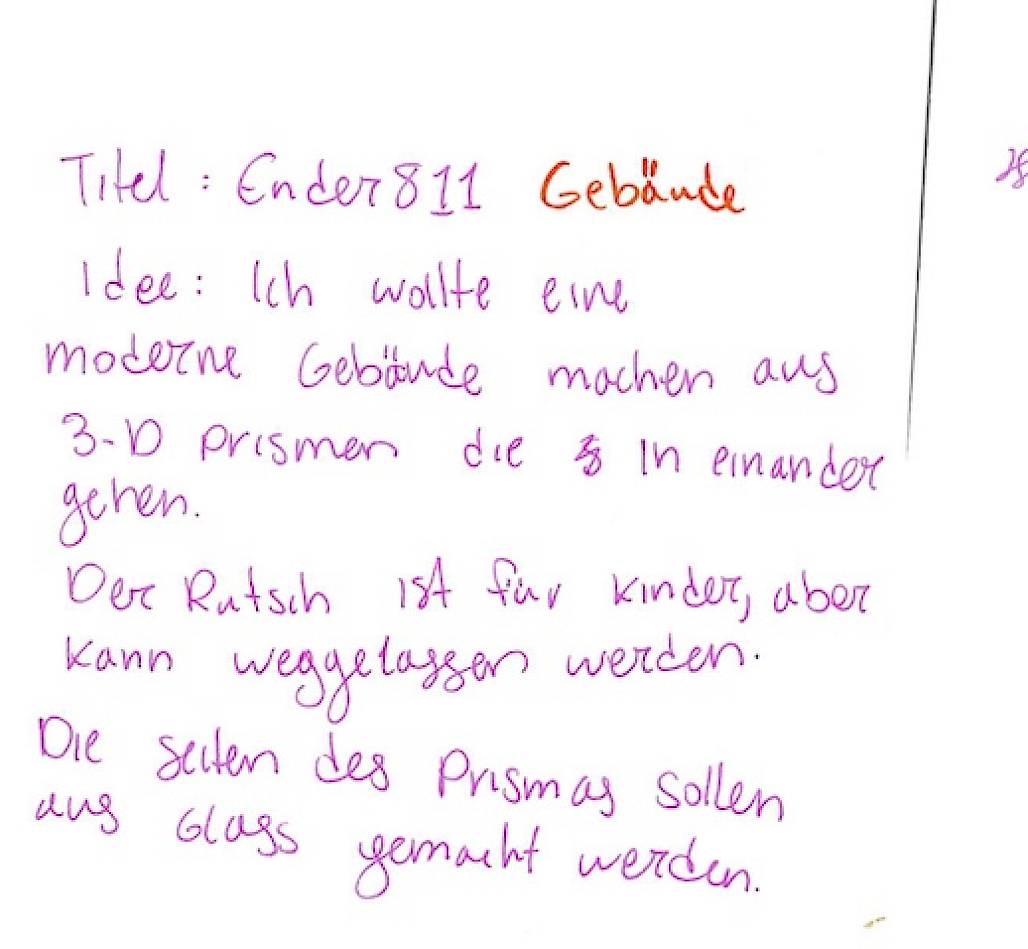 Titel: Ender811 Gebäude
Idee: Ich wollte eine
moderne Gebäude machen aus
3-D prismen die in einander
gehen.
Der Rutsch ist für kinder, aber
kann weggelassen werden.
Die seiten des Prismas sollen
aus Glass gemacht werden.